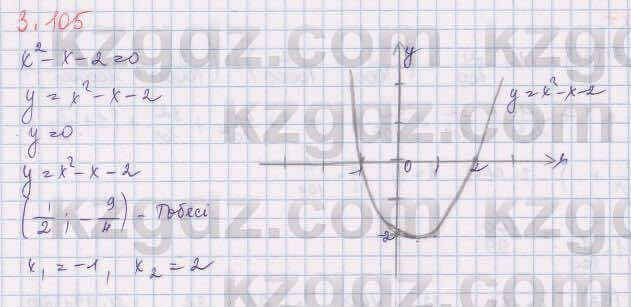 3.105
x² - x - 2 = 0
y = x² - x - 2
y = 0
y = x² - x - 2
(1/2; -9/4) - Төбесі
x₁ = -1, x₂ = 2
y
y = x² - x - 2
-1 0 1 2 x
-2
kzgdz.com
kzgdz.com
kzgdz.com
kzgdz.com